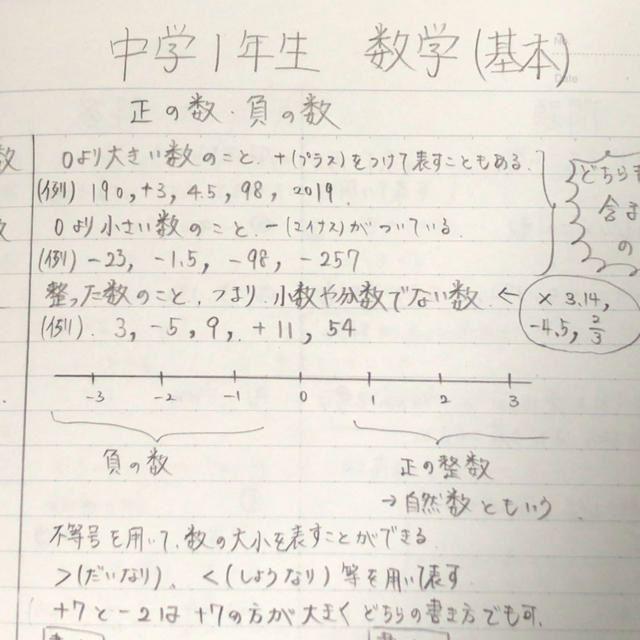 中学1年生 数学(基本)
No.
Date
正の数・負の数
数 0より大きい数のこと、+(プラス)をつけて表すこともある。
(例) 190, +3, 4.5, 98, 2019
数 0より小さい数のこと、-(マイナス)がついている。
(例) -23, -1.5, -98, -257
どちらも
含ま
の
整った数のこと、つまり、小数や分数でない数 ←
(例). 3, -5, 9, +11, 54
× 3.14,
-4.5, 2/3
-3 -2 -1 0 1 2 3
負の数 正の整数
→自然数ともいう
不等号を用いて、数の大小を表すことができる
>(だいなり)、<(しょうなり)等を用いて表す
+7と-2は+7の方が大きく どちらの書き方でも可.